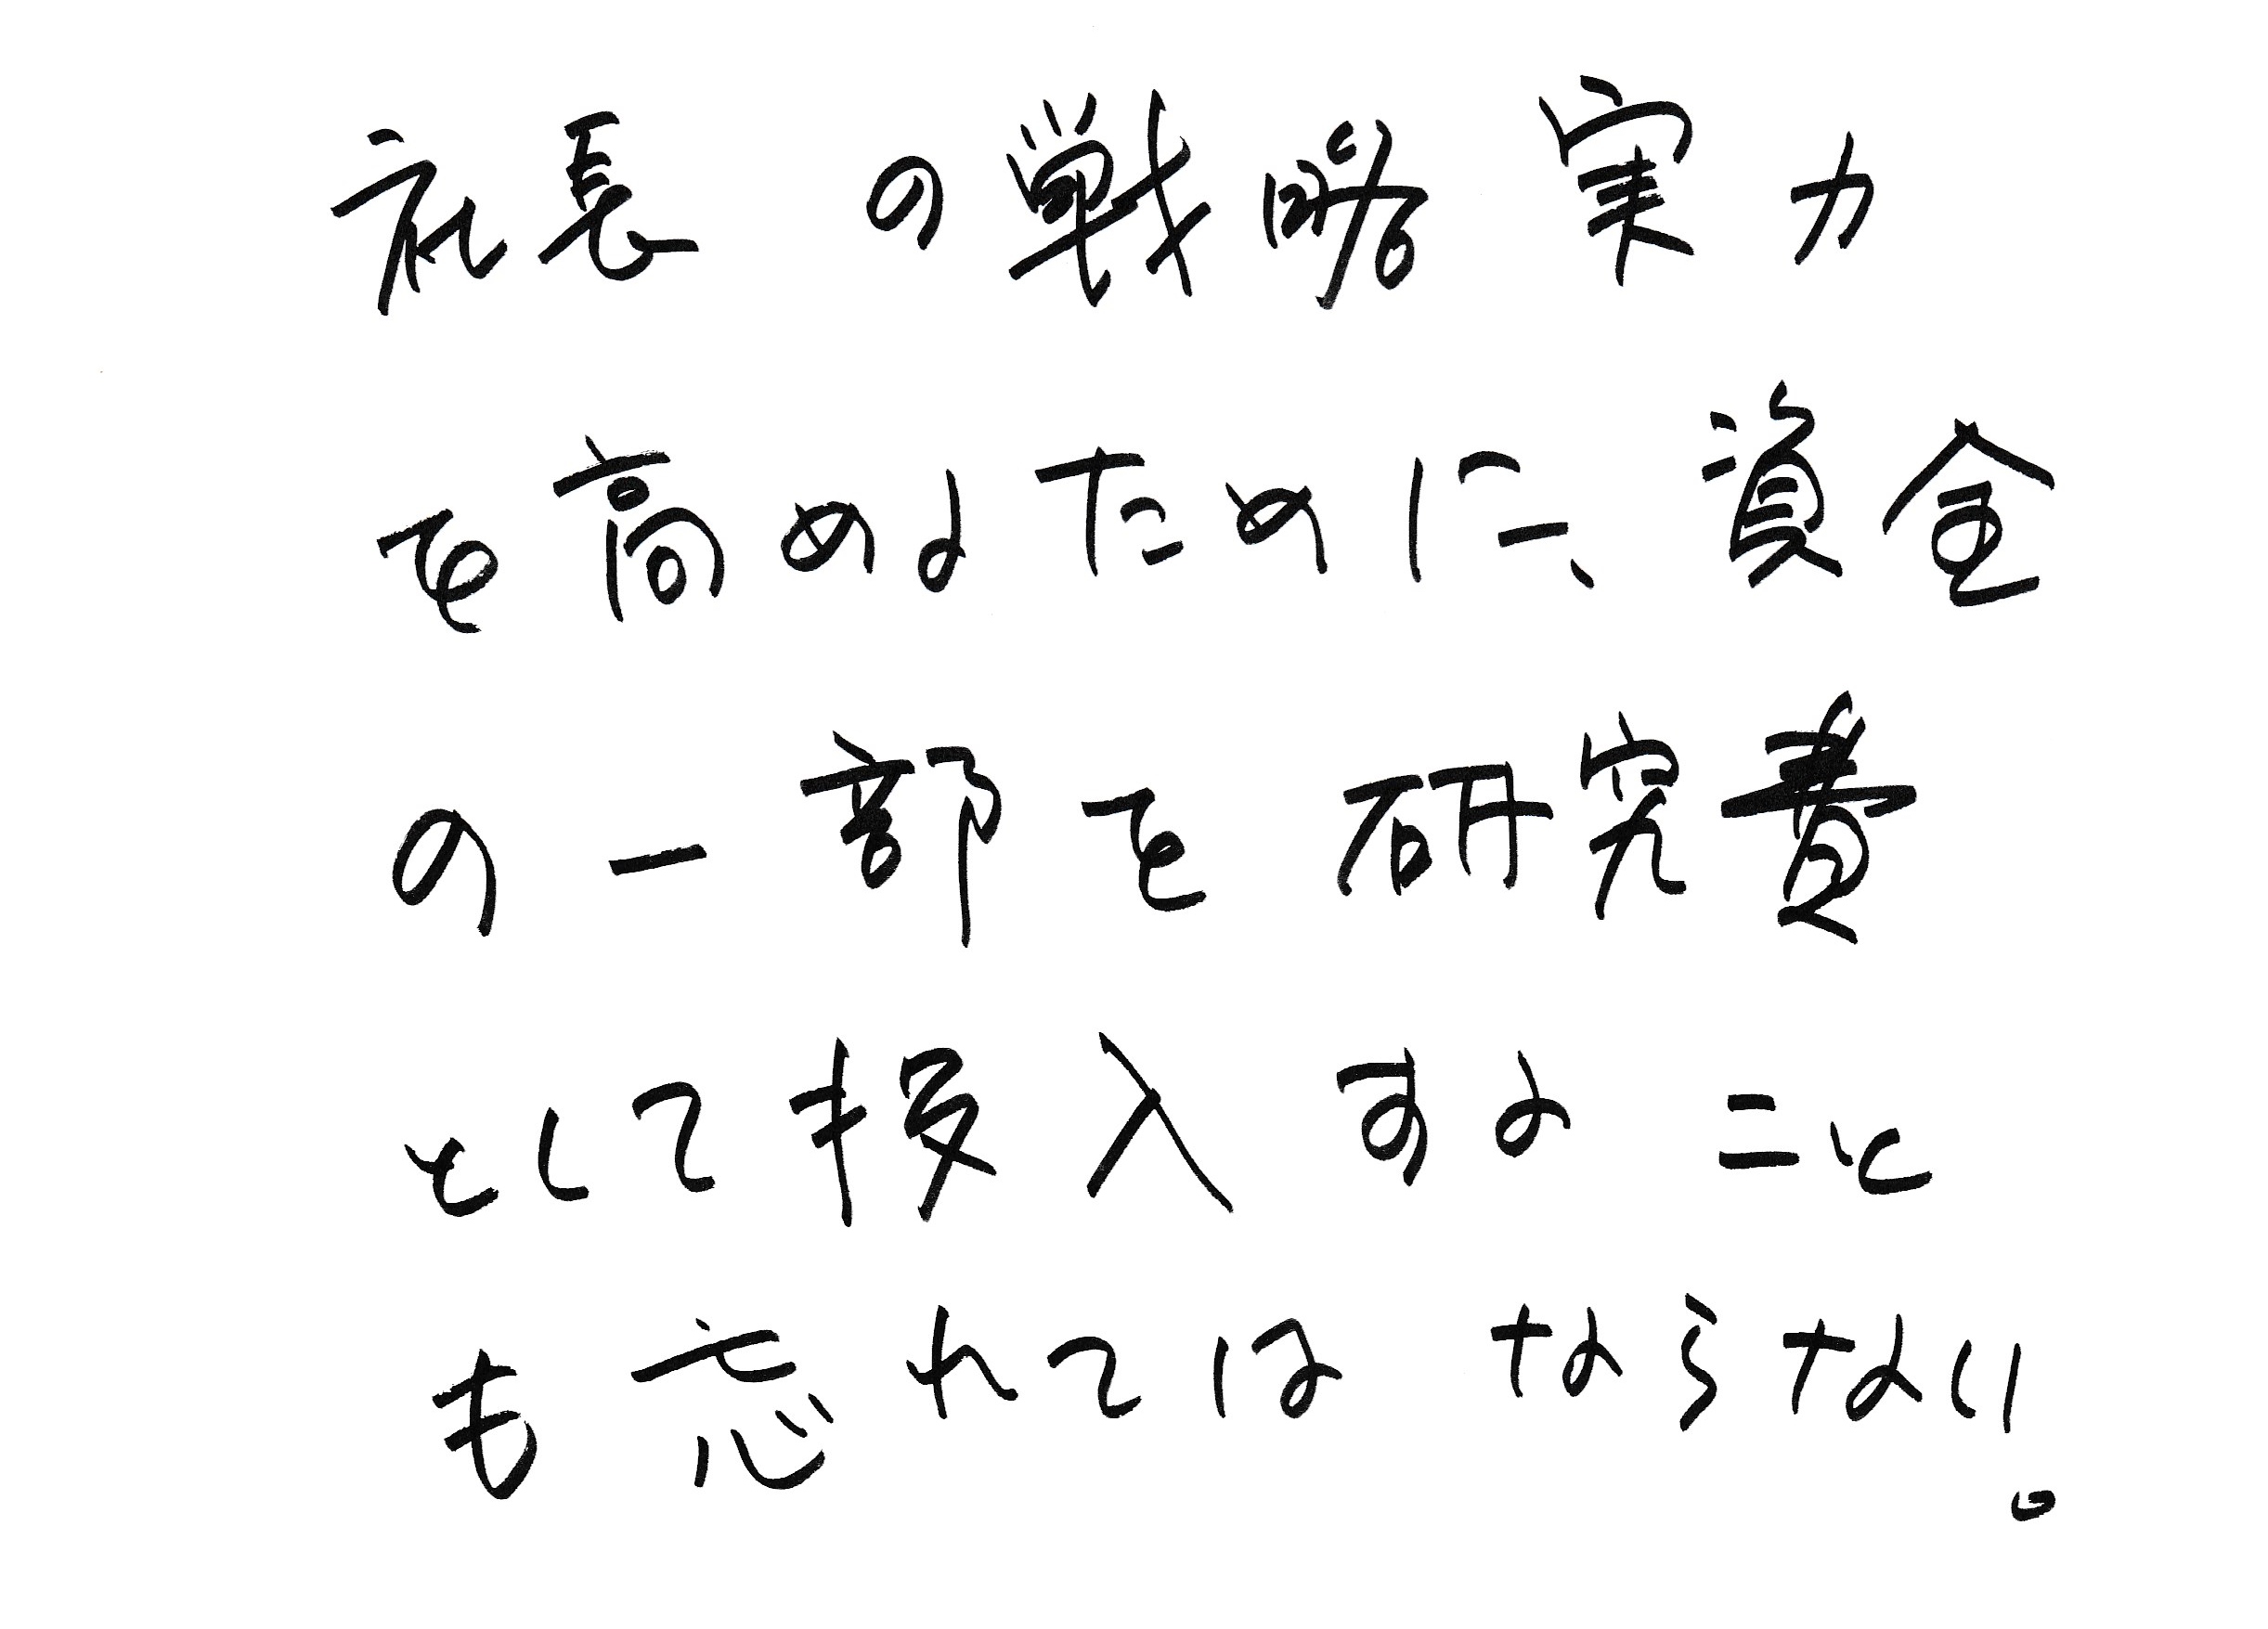 社長の戦略実力
を高めるために、資金
の一部を研究費
として投入すること
も忘れてはならない。